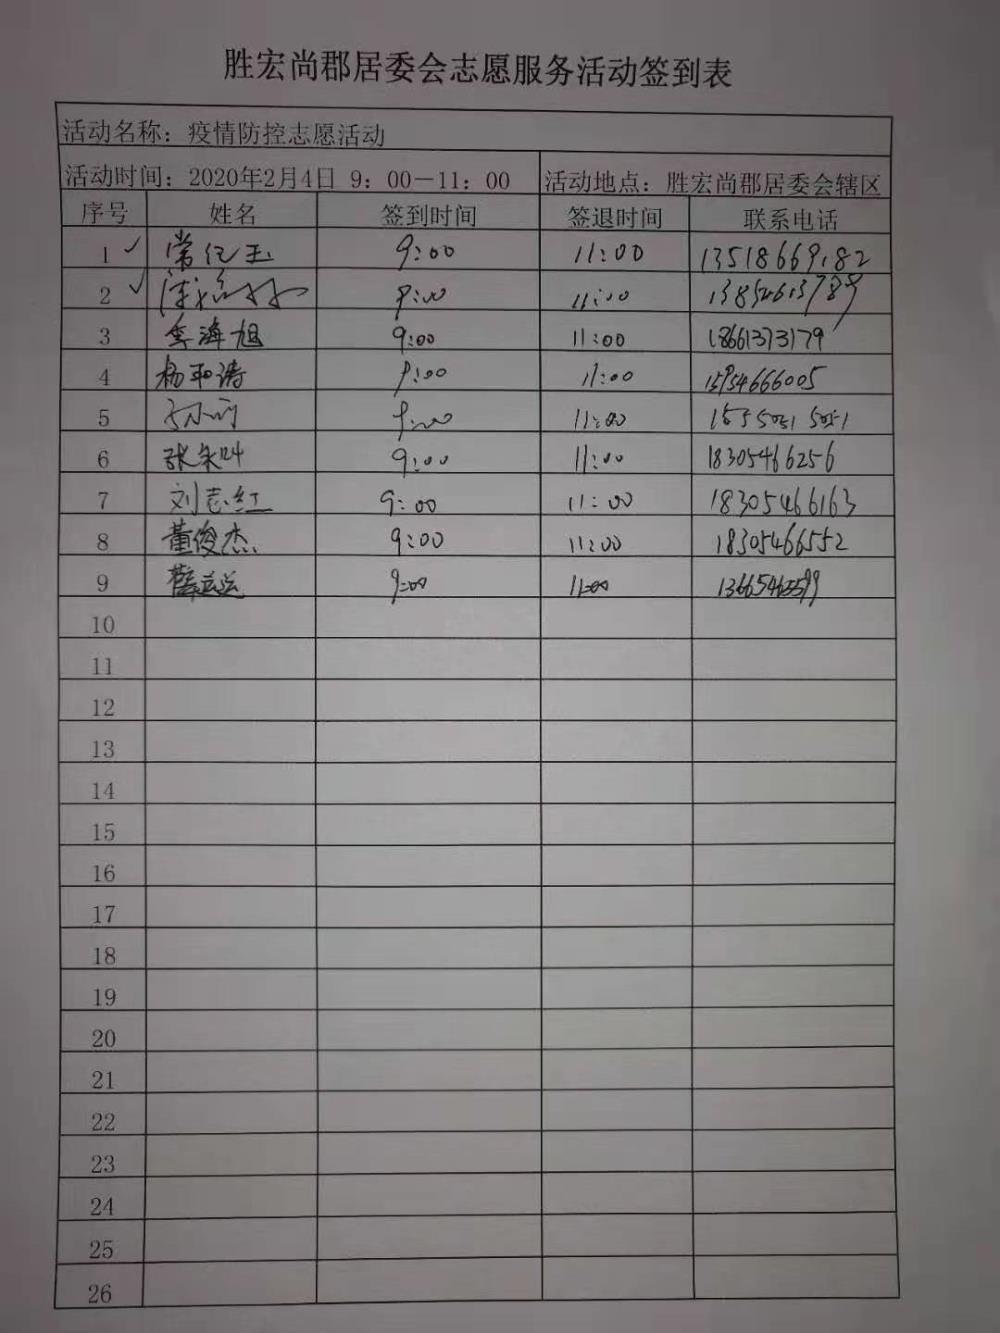 胜宏尚郡居委会志愿服务活动签到表
活动名称：疫情防控志愿活动
活动时间：2020年2月4日 9：00－11：00 活动地点：胜宏尚郡居委会辖区
序号 姓名 签到时间 签退时间 联系电话
1 ✓ 常红玉 9:00 11:00 13518669182
2 ✓ 9:00 11:00
3 李海旭 9:00 11:00 18661373179
4 杨和涛 9:00 11:00 15954666005
5 9:00 11:00
6 9:00 11:00 18305466256
7 刘志红 9:00 11:00 18305466163
8 董俊杰 9:00 11:00 18305466552
9 9:00 11:00
10
11
12
13
14
15
16
17
18
19
20
21
22
23
24
25
26